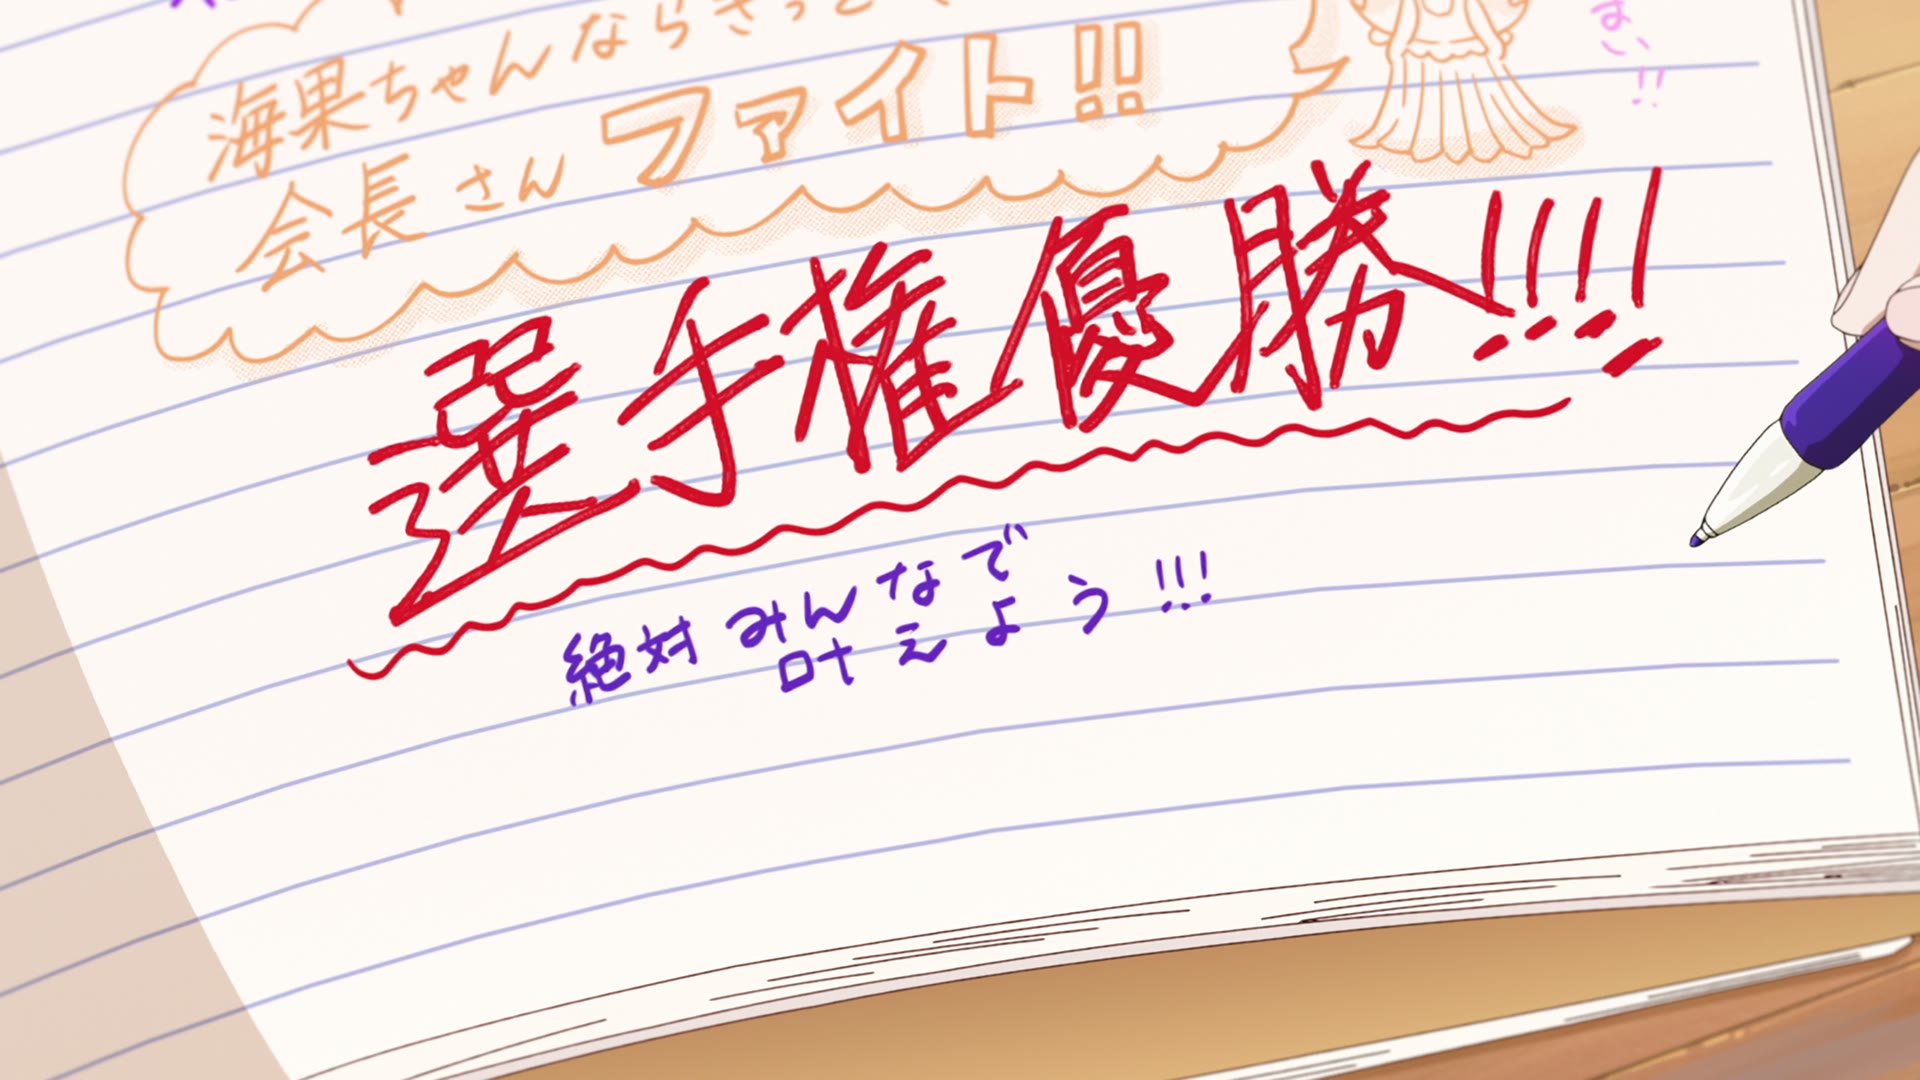 海果ちゃんならきっと
会長さんファイト!!
はい!!
選手権優勝!!!!
絶対みんなで
叶えよう!!!